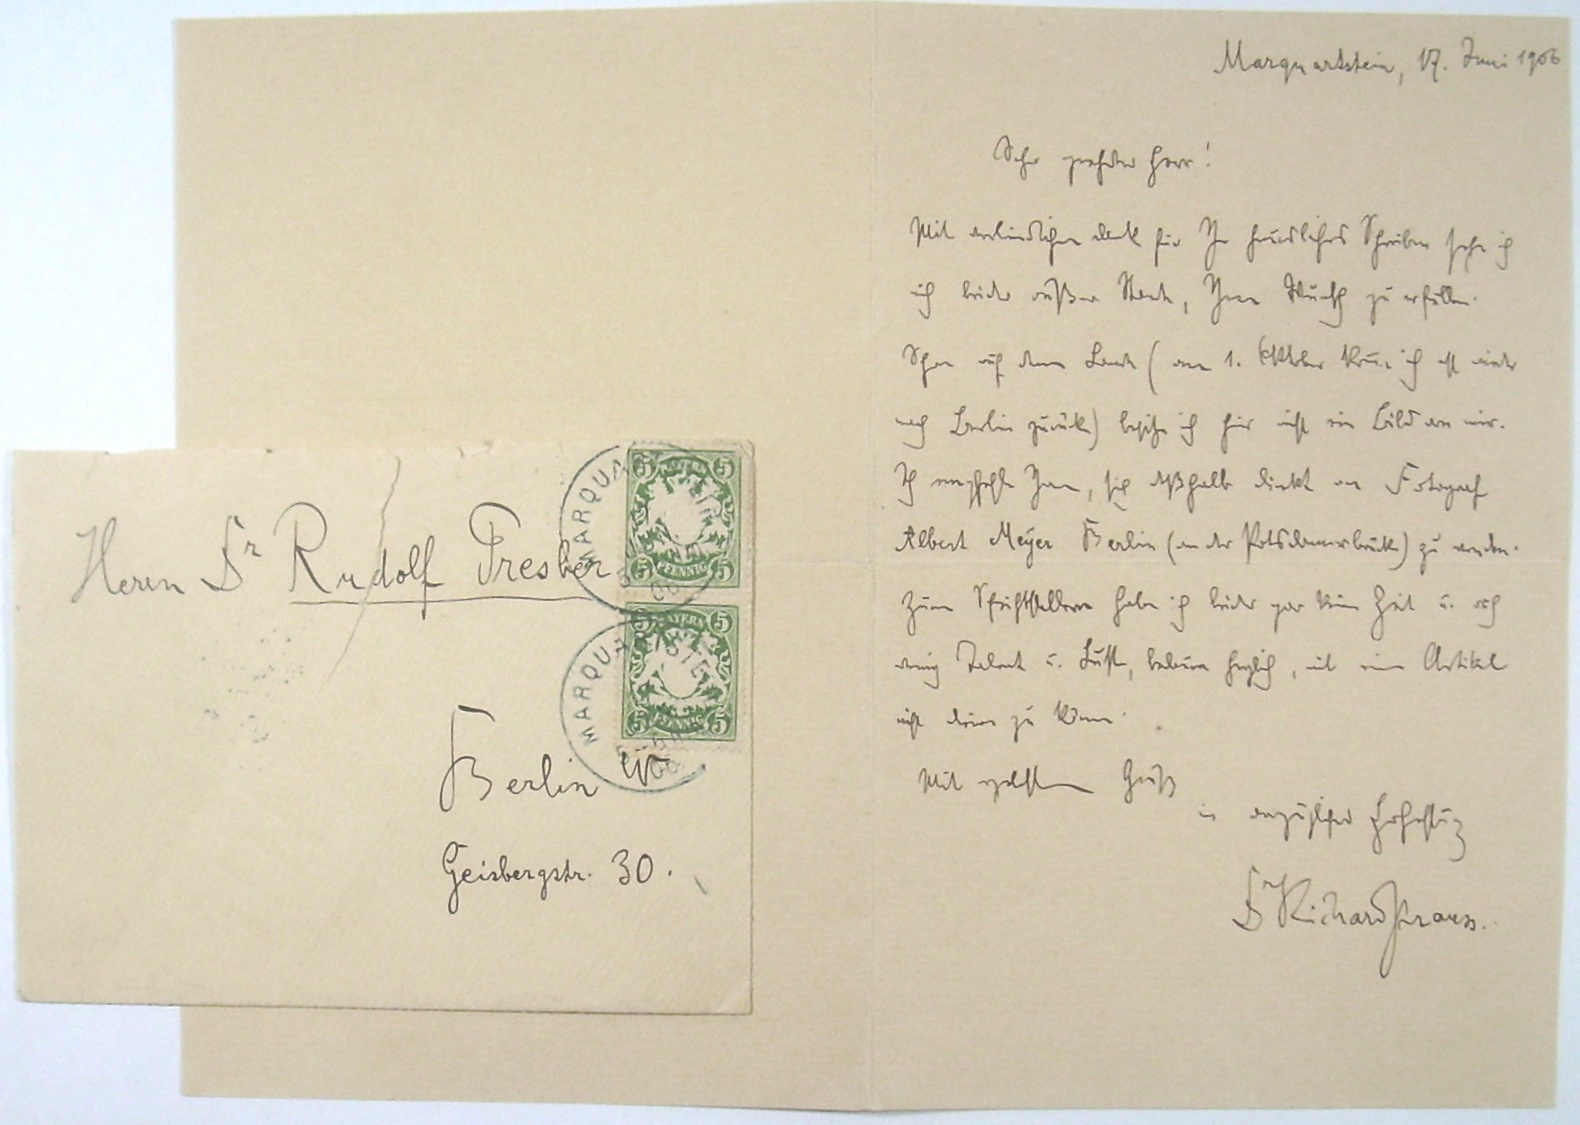 Marquartstein, 17. Juni 1906
Sehr geehrter Herr!
Mit verbindlichem Dank für Ihr freundliches Schreiben sehe ich
ich leider außer Stande, Ihren Wunsch zu erfüllen.
Schon auf dem Lande (am 1. Oktober komme ich erst wieder
nach Berlin zurück) besitze ich hier nicht ein Bild von mir.
Ich empfehle Ihnen, sich deßhalb direkt an Fotograf
Albert Meyer Berlin (an der Potsdamerbrücke) zu wenden.
Zum Schriftstellern habe ich leider gar keine Zeit u. auch
wenig Talent u. Lust, bedaure herzlich, mit einem Artikel
nicht dienen zu können.
Mit Gruß
in vorzüglicher Hochachtung
Dr Richard Strauss.
Herrn Dr Rudolf Presber
Berlin W
Geisbergstr. 30.
MARQUARTSTEIN
BAYERN
5 5
5 PFENNIG 5
MARQUARTSTEIN
BAYERN
5 5
5 PFENNIG 5